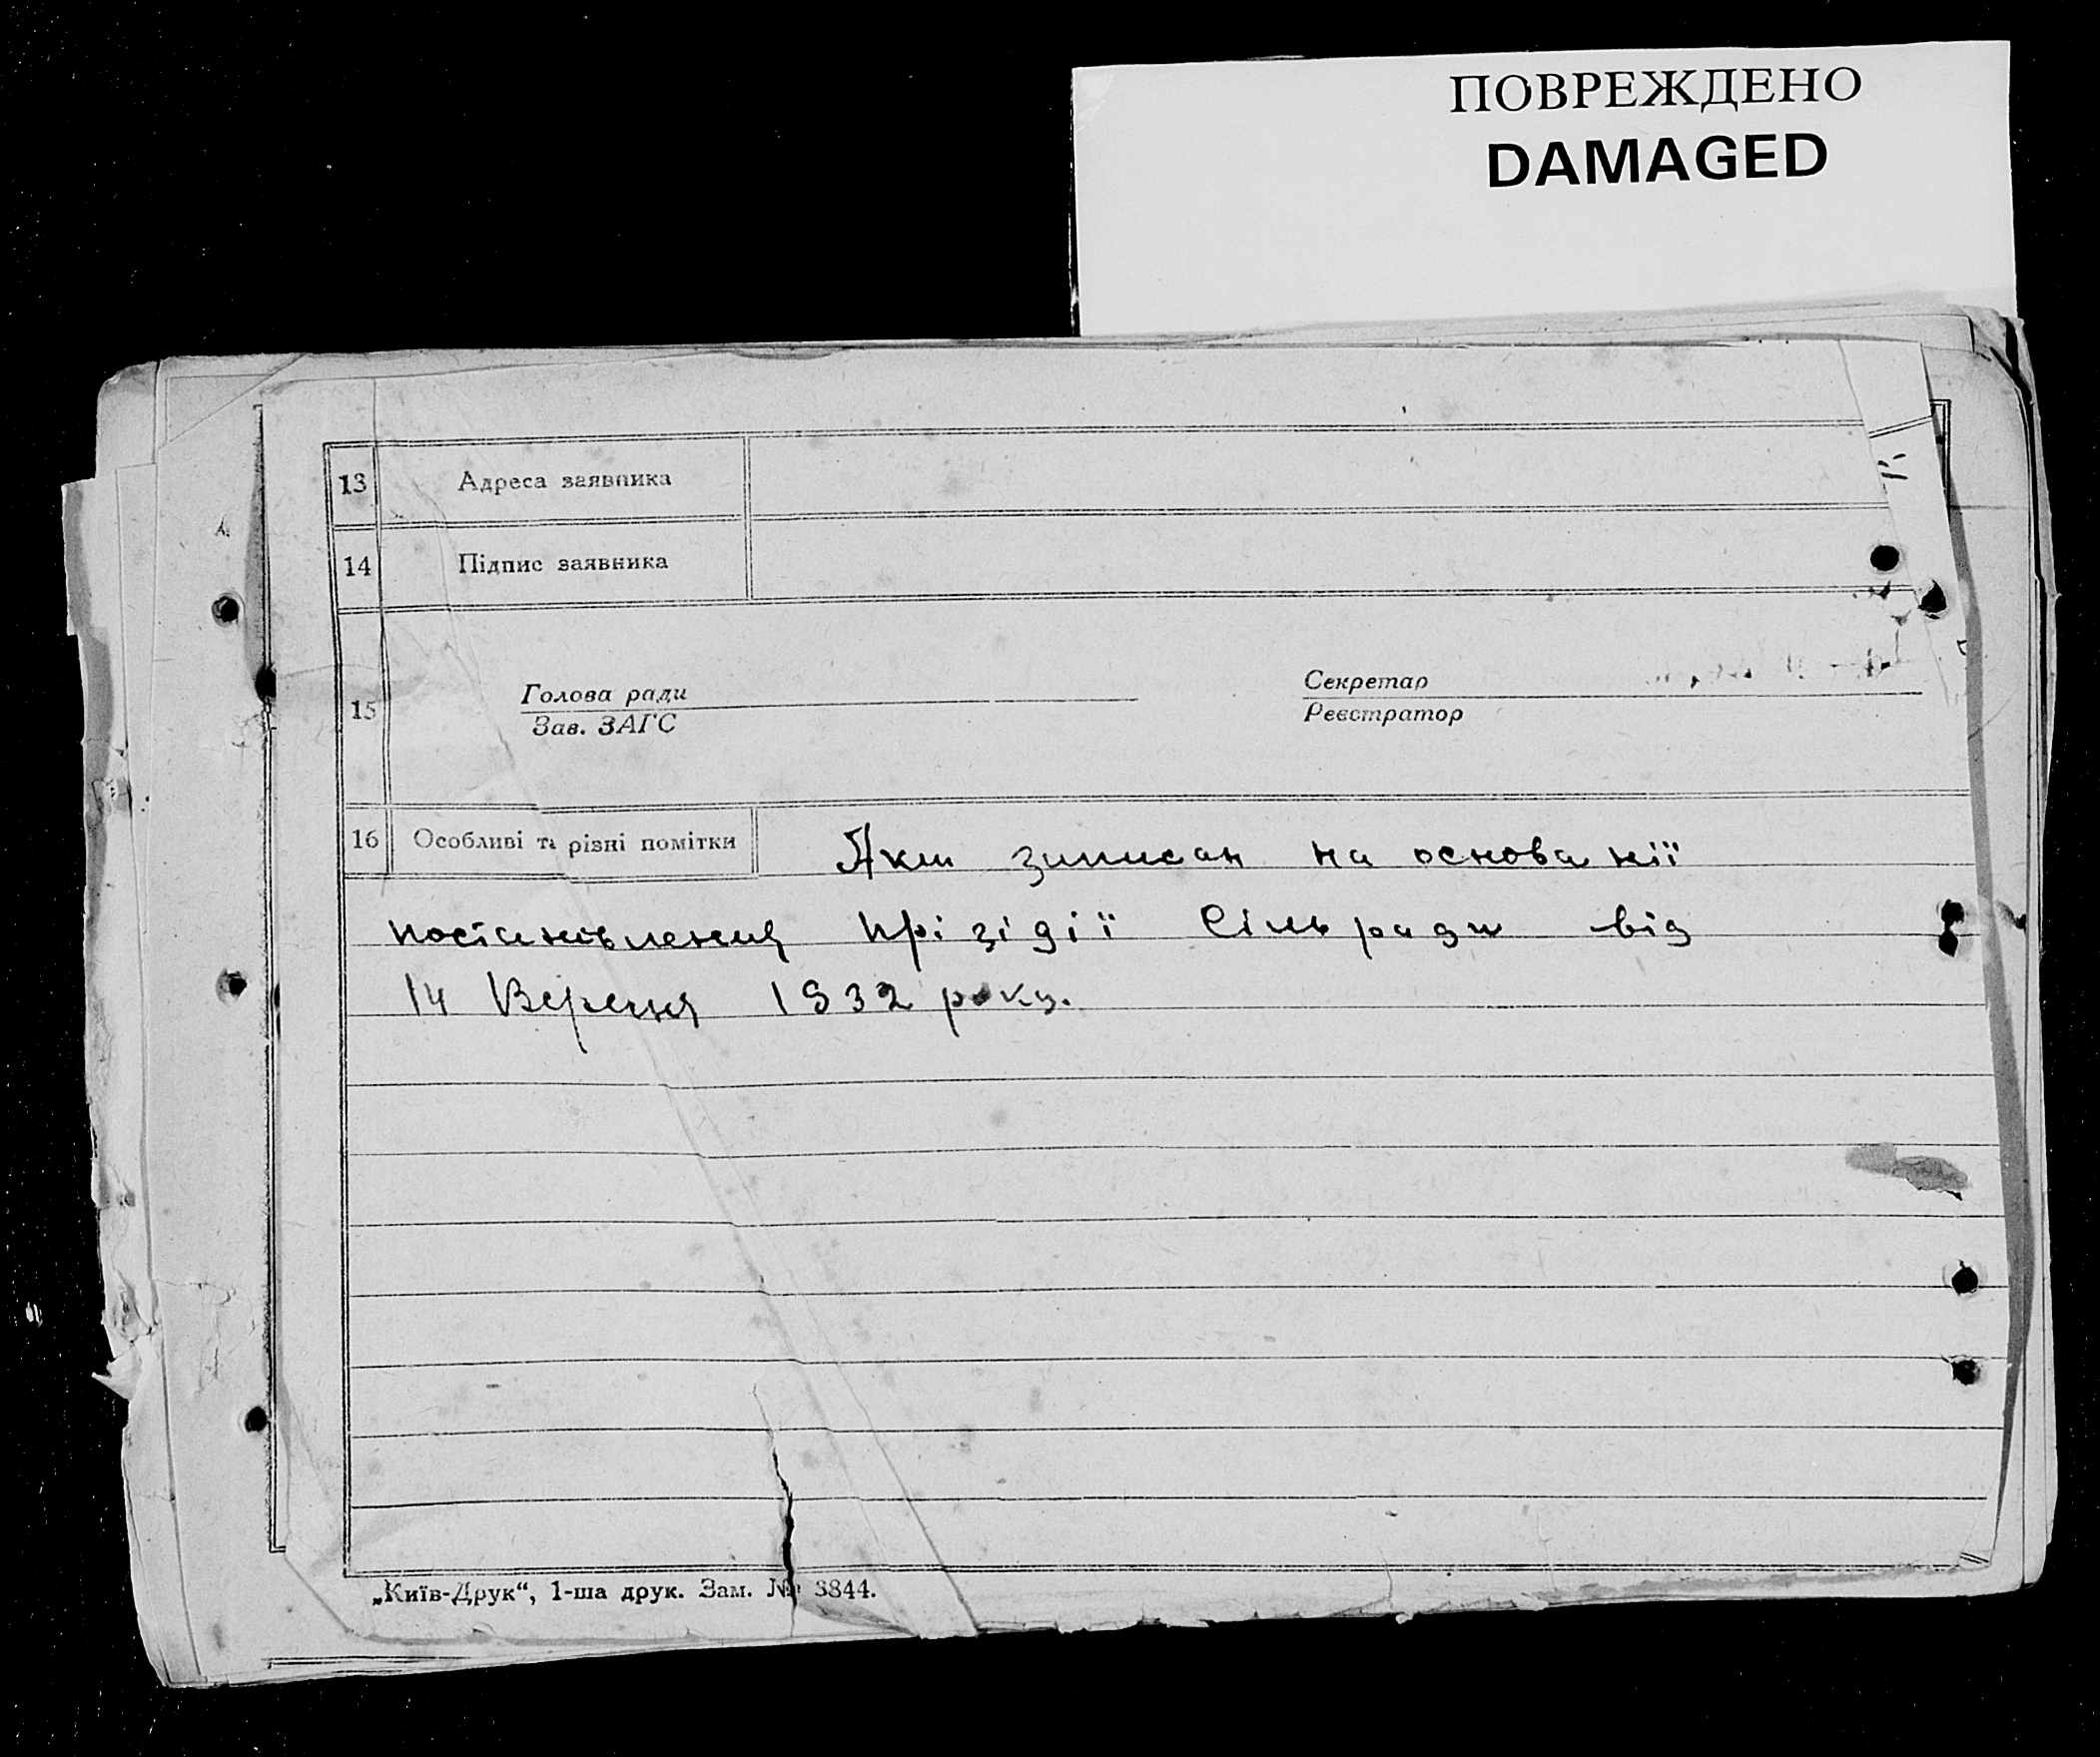 ПОВРЕЖДЕНО
DAMAGED
13 Адреса заявника
14 Підпис заявника
15 Голова ради Секретар
Зав. ЗАГС Реєстратор
16 Особливі та різні помітки Акт записан на основанії
постановления прізідії Сільради від
14 Вересня 1932 року.
„Київ-Друк“, 1-ша друк. Зам. № 3844.